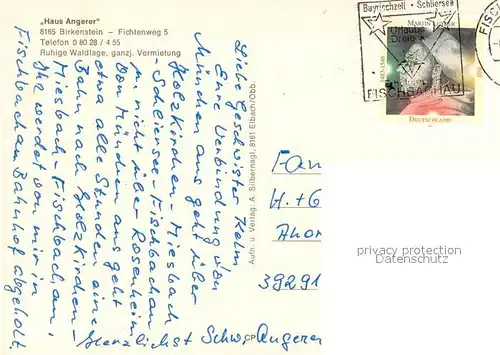 „Haus Angerer"
8165 Birkenstein – Fichtenweg 5
Telefon 0 80 28 / 4 55
Ruhige Waldlage, ganzj. Vermietung
Liebe Geschwister Kolm
Eine Verbindung von
München aus geht über
Holzkirchen - Miesbach
- Schliersee - Fischbachau
nicht über Rosenheim
Von München aus geht
etwa alle Stunden eine
Bahn nach Holzkirchen -
Miesbach - Fischbachau.
Ihr werdet von mir in
Fischbachau Bahnhof abgeholt.
Herzlichst Schw. Angerer
Aufn. u. Verlag: A. Silbernagl, 8161 Elbach/Obb.
Bayrischzell · Schliersee
Urlaubs
Dreieck
FISCHBACHAU
MARTIN LUTHER
1483-1546
DEUTSCHLAND
FISC
Fam
H. + G
Ahor
39291
CP
privacy protection
Datenschutz